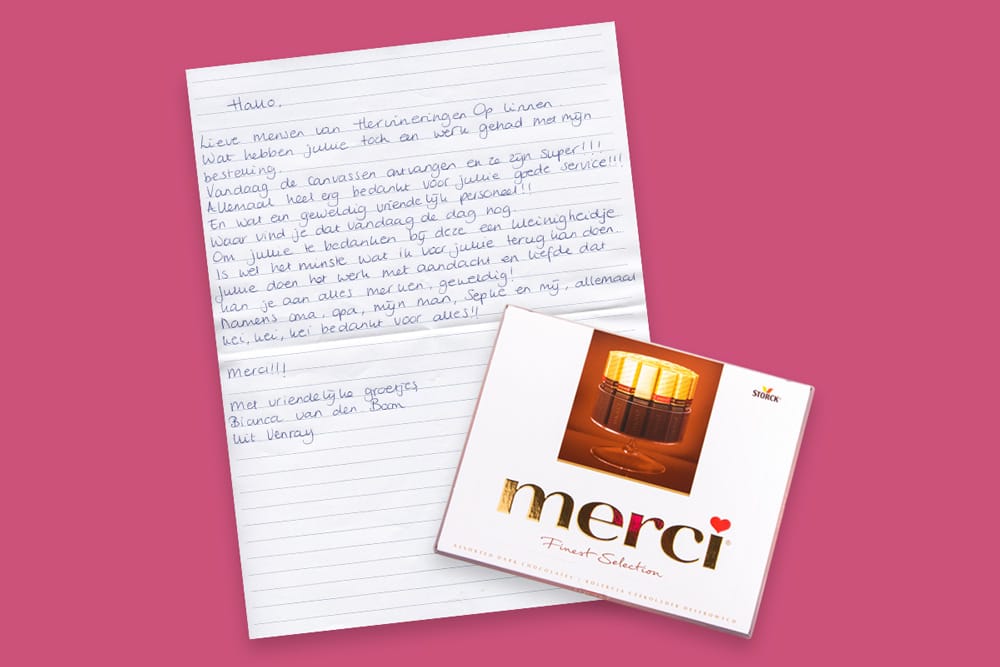 Hallo,
Lieve mensen van Herinneringen Op Linnen.
Wat hebben jullie toch een werk gehad met mijn
bestelling.
Vandaag de canvassen ontvangen en ze zijn super!!!
Allemaal heel erg bedankt voor jullie goede service!!!
En wat een geweldig vriendelijk personeel!!
Waar vind je dat vandaag de dag nog.
Om jullie te bedanken bij deze een kleinigheidje
Is wel het minste wat ik voor jullie terug kan doen.
Jullie doen het werk met aandacht en liefde dat
kan je aan alles merken, geweldig!
Namens oma, opa, mijn man, Sepke en mij, allemaal
kei, kei, kei bedankt voor alles!!
Merci!!!
Met vriendelijke groetjes
Bianca van den Boom
Uit Venray
STORCK
merci
Finest Selection
ASSORTED DARK CHOCOLATES | KOLEKCJA CZEKOLADEK DESEROWYCH